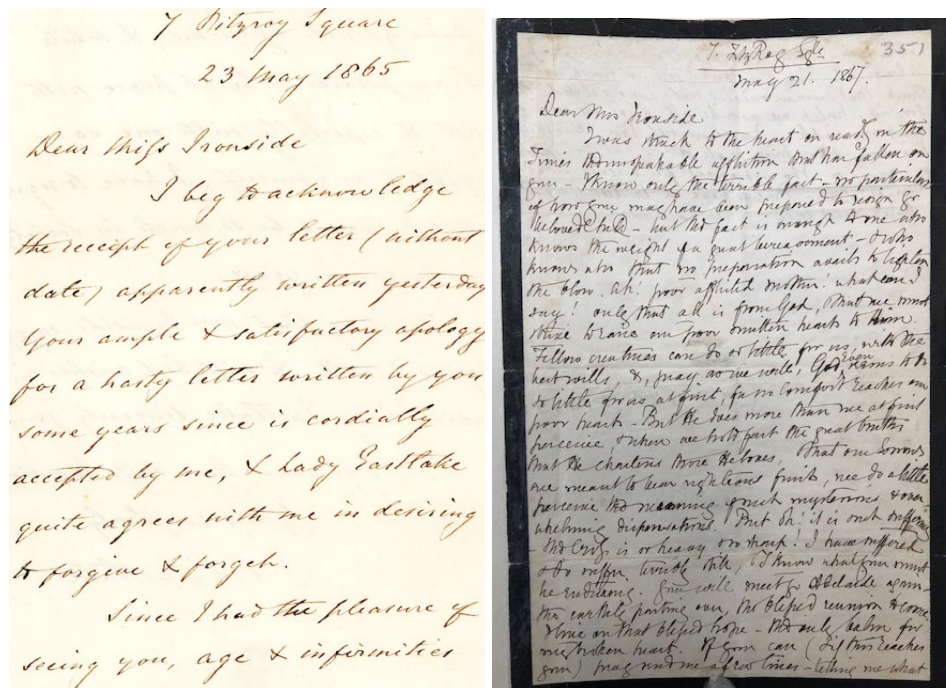 7 Fitzroy Square
23 May 1865
Dear Miss Ironside
I beg to acknowledge
the receipt of your letter (without
date) apparently written yesterday
Your ample & satisfactory apology
for a hasty letter written by you
some years since is cordially
accepted by me, & Lady Eastlake
quite agrees with me in desiring
to forgive & forget.
Since I had the pleasure of
seeing you, age & infirmities
351
7. FitzRoy Sqre
May 21. 1867.
Dear Mrs Ironside
I was struck to the heart on reading in the
Times the unspeakable affliction that has fallen on
you - I know only the terrible fact - no particulars
of how you may have been prepared to resign yr
beloved child - but the fact is enough to one who
knows the weight of a great bereavement - & who
knows also that no preparation avails to lighten
the blow. Ah! poor afflicted mother! what can I
say! only that all is from God, that we must
strive to raise our poor smitten hearts to Him.
Fellow creatures can do so little for us, with the
best wills, &, pray as we will, God even seems to do
so little for us at first, for no comfort reaches our
poor heart - But He does more than we at first
perceive & when we hold fast the great truths
that He chastens those He loves, & that our sorrows
are meant to bear righteous fruit, we do a little
perceive the meaning of such mysterious & over
whelming dispensations. But oh! it is such suffering
- the Cross is so heavy & so sharp! I have suffered
& do suffer terribly still, & I know what you must
be enduring. You will meet yr Adelaide again -
this earthly parting over, the blessed reunion to come
& live on that blessed hope - the only balm for
my broken heart. If you can (& if this reaches
you) pray send me a few lines - telling me what